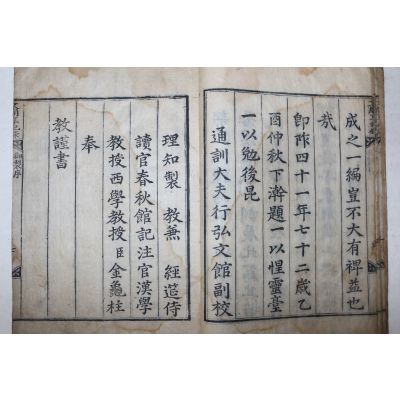 成之一編豈不大有裨益也
哉
卽阼四十一年七十二歲乙
酉仲秋下澣題一以惺靈臺
一以勉後昆
通訓大夫行弘文館副校
理知製 教兼 經筵侍
讀官春秋館記注官漢學
教授西學教授臣金龜柱
奉
教謹書